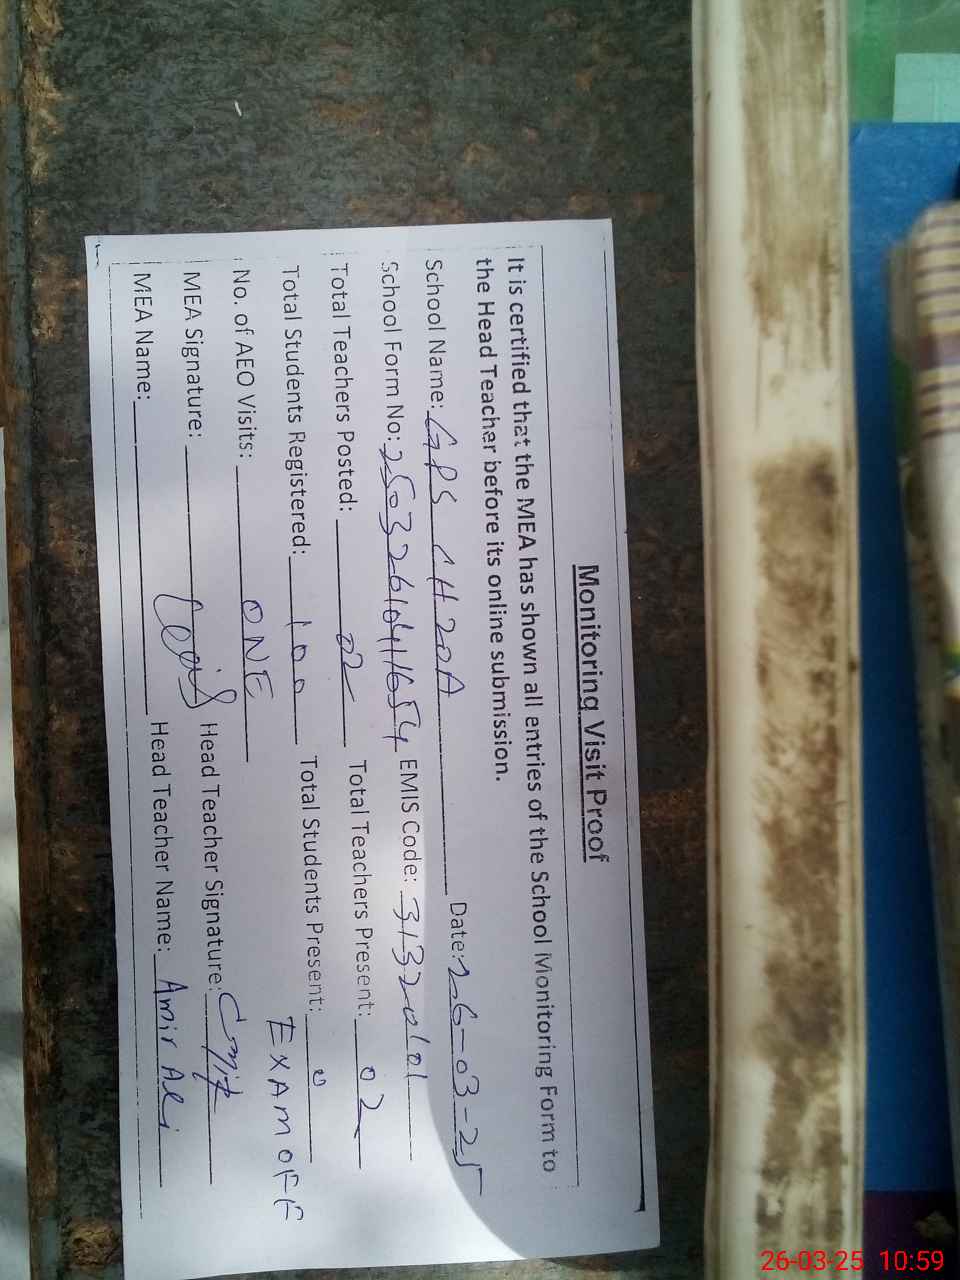 Monitoring Visit Proof
It is certified that the MEA has shown all entries of the School Monitoring Form to
the Head Teacher before its online submission.
School Name: GPS CHZOA Date: 26-03-25
School Form No: EMIS Code: 31320101
Total Teachers Posted: 02 Total Teachers Present: 02
Total Students Registered: 100 Total Students Present: 0
No. of AEO Visits: ONE EXAM OFF
MEA Signature: Head Teacher Signature:
MEA Name: Head Teacher Name: Amir Ali
26-03-25 10:59